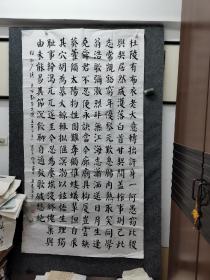 杜陵有布衣老大意轉拙許身一何愚竊比稷
與契居然成濩落白首甘契闊蓋棺事則已此
志常覬豁窮年憂黎元歎息腸內熱取笑同學
翁浩歌彌激烈非無江海志蕭灑送日月生逢
堯舜君不忍便永訣當今廊廟具構廈豈云缺
葵藿傾太陽物性固難奪顧惟螻蟻輩但自求
其穴胡為慕大鯨輒擬偃溟渤以茲悟生理獨
恥事干謁兀兀遂至今忍為塵埃沒終愧巢與
由未能易其節沈飲聊自適放歌破愁絕